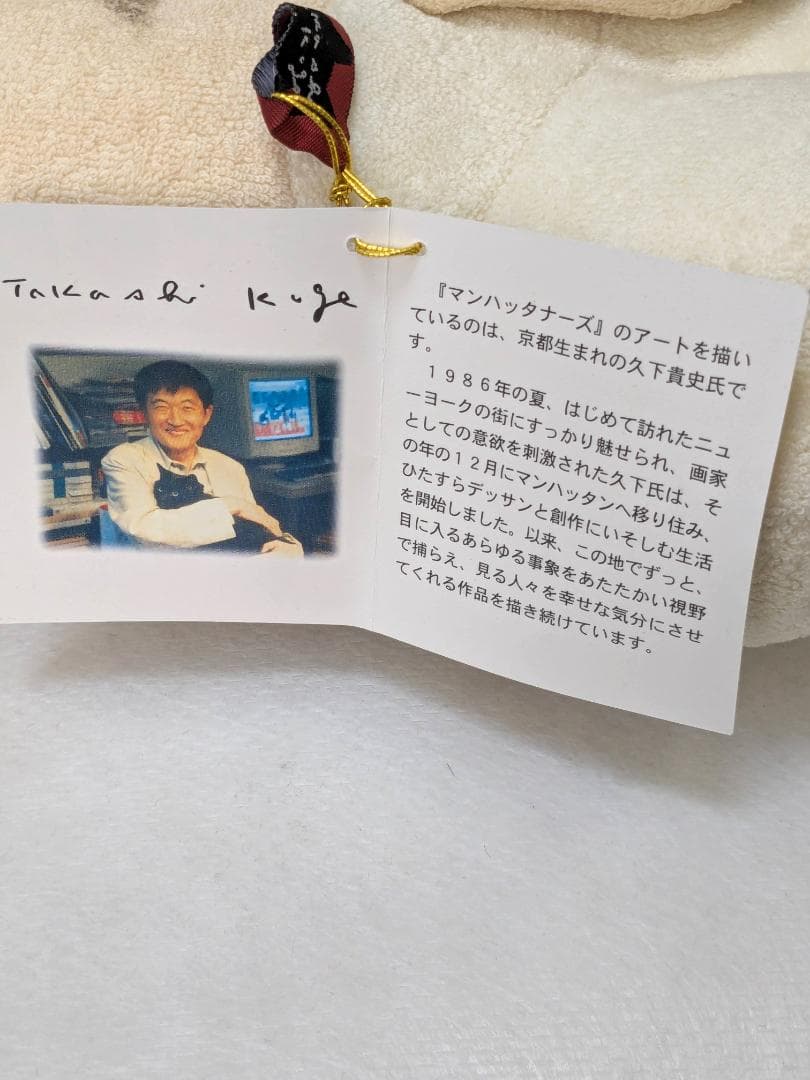 Takashi Kuge
『マンハッタナーズ』のアートを描い
ているのは、京都生まれの久下貴史氏で
す。
１９８６年の夏、はじめて訪れたニュ
ーヨークの街にすっかり魅せられ、画家
としての意欲を刺激された久下氏は、そ
の年の１２月にマンハッタンへ移り住み、
ひたすらデッサンと創作にいそしむ生活
を開始しました。以来、この地でずっと、
目に入るあらゆる事象をあたたかい視野
で捕らえ、見る人々を幸せな気分にさせ
てくれる作品を描き続けています。